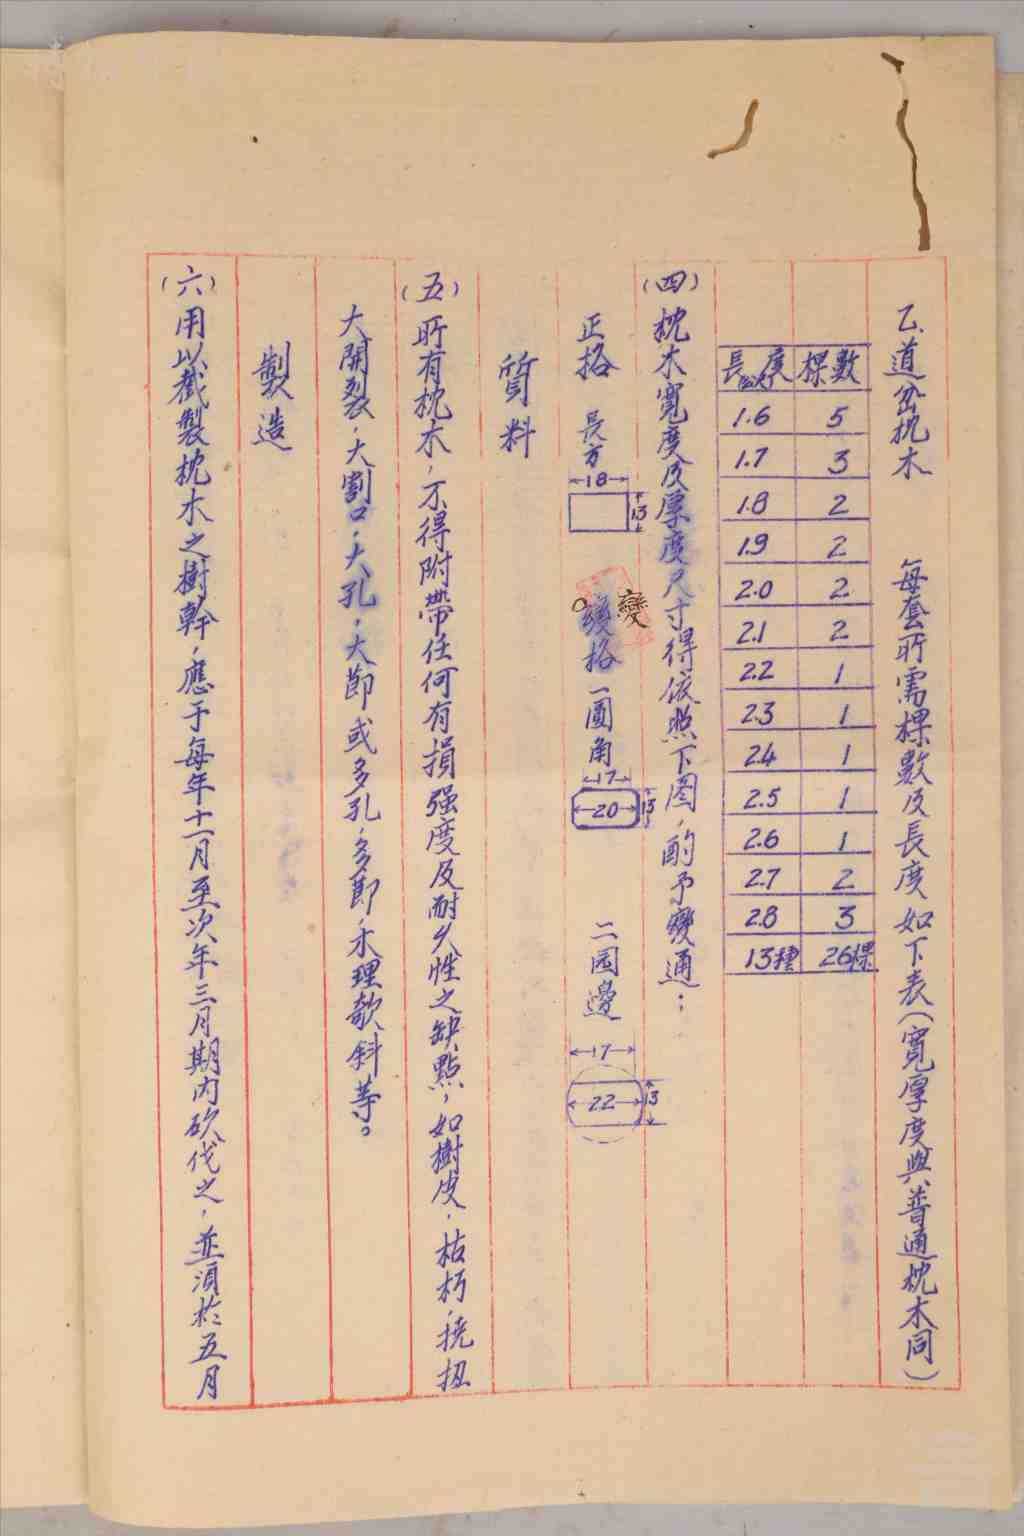 乙、道岔枕木　每套所需棵數及長度如下表(寬厚度與普通枕木同)
長度公尺 棵數
1.6 5
1.7 3
1.8 2
1.9 2
2.0 2
2.1 2
2.2 1
2.3 1
2.4 1
2.5 1
2.6 1
2.7 2
2.8 3
13種 26棵
(四)枕木寬度及厚度尺寸得依照下圖，酌予變通：
正格　長方
18
13
變
變格　一圓角
17
20
13
二园邊
17
22
13
質料
(五)所有枕木，不得附帶任何有損强度及耐久性之缺點，如樹皮，枯朽，撓扭
大開裂，大割口，大孔，大節，或多孔，多節，木理欹斜等。
製造
(六)用以截製枕木之樹幹，應于每年十一月至次年三月期內砍伐之，並須於五月